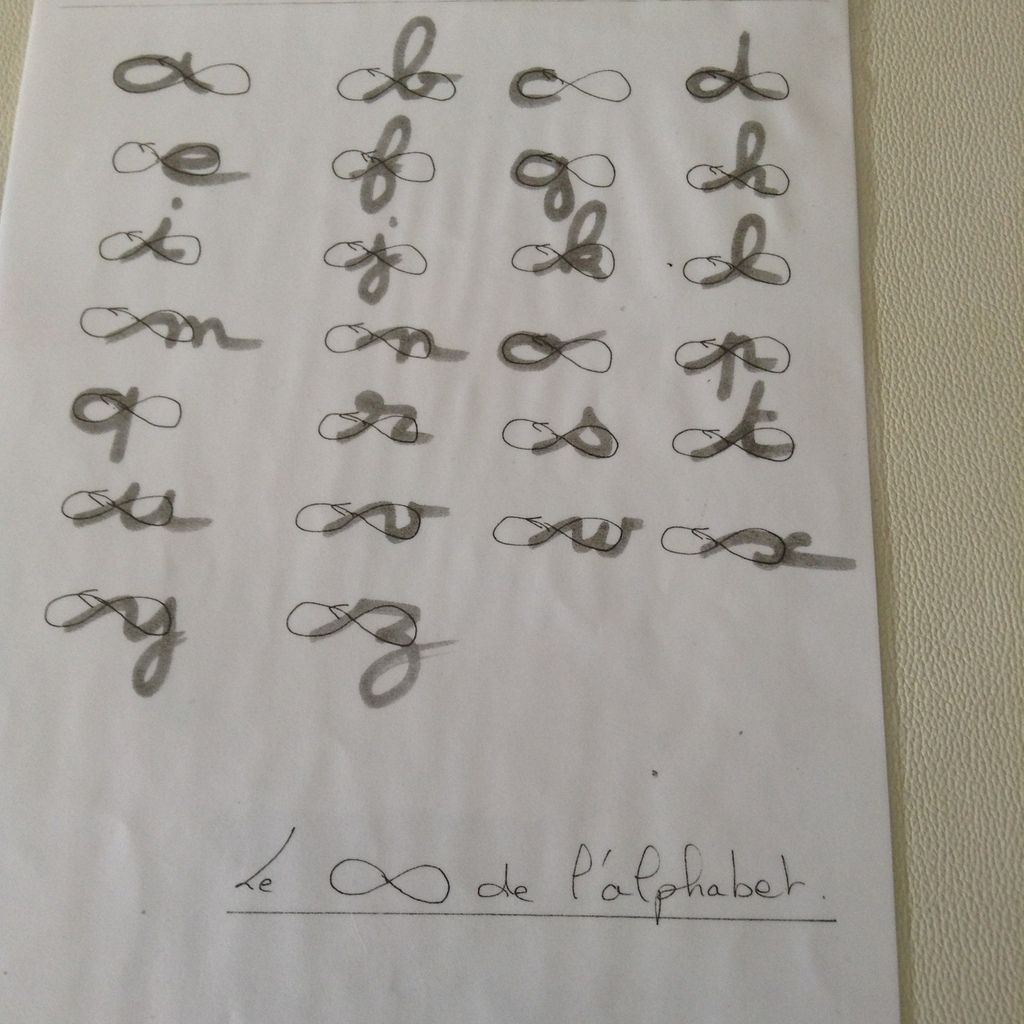 a b c d
e f g h
i j k l
m n o p
q r s t
u v w x
y z
Le ∞ de l'alphabet.